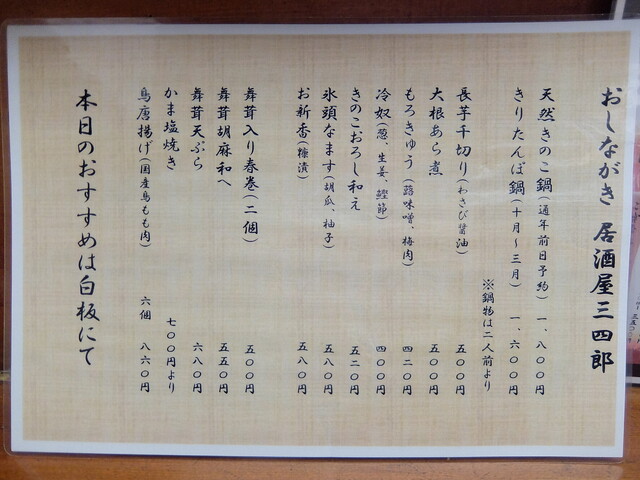 おしながき 居酒屋三四郎
天然きのこ鍋(通年前日予約) 一、八〇〇円
きりたんぽ鍋(十月~三月) 一、六〇〇円
※鍋物は二人前より
長芋千切り(わさび醤油) 五〇〇円
大根あら煮 五〇〇円
もろきゅう(蕗味噌、梅肉) 四二〇円
冷奴(葱、生姜、鰹節) 四〇〇円
きのこおろし和え 五二〇円
氷頭なます(胡瓜、柚子) 五八〇円
お新香(糠漬) 五八〇円
舞茸入り春巻(二個) 五〇〇円
舞茸胡麻和へ 五五〇円
舞茸天ぷら 六八〇円
かま塩焼き 七〇〇円より
鳥唐揚げ(国産鳥もも肉) 六個 八六〇円
本日のおすすめは白板にて